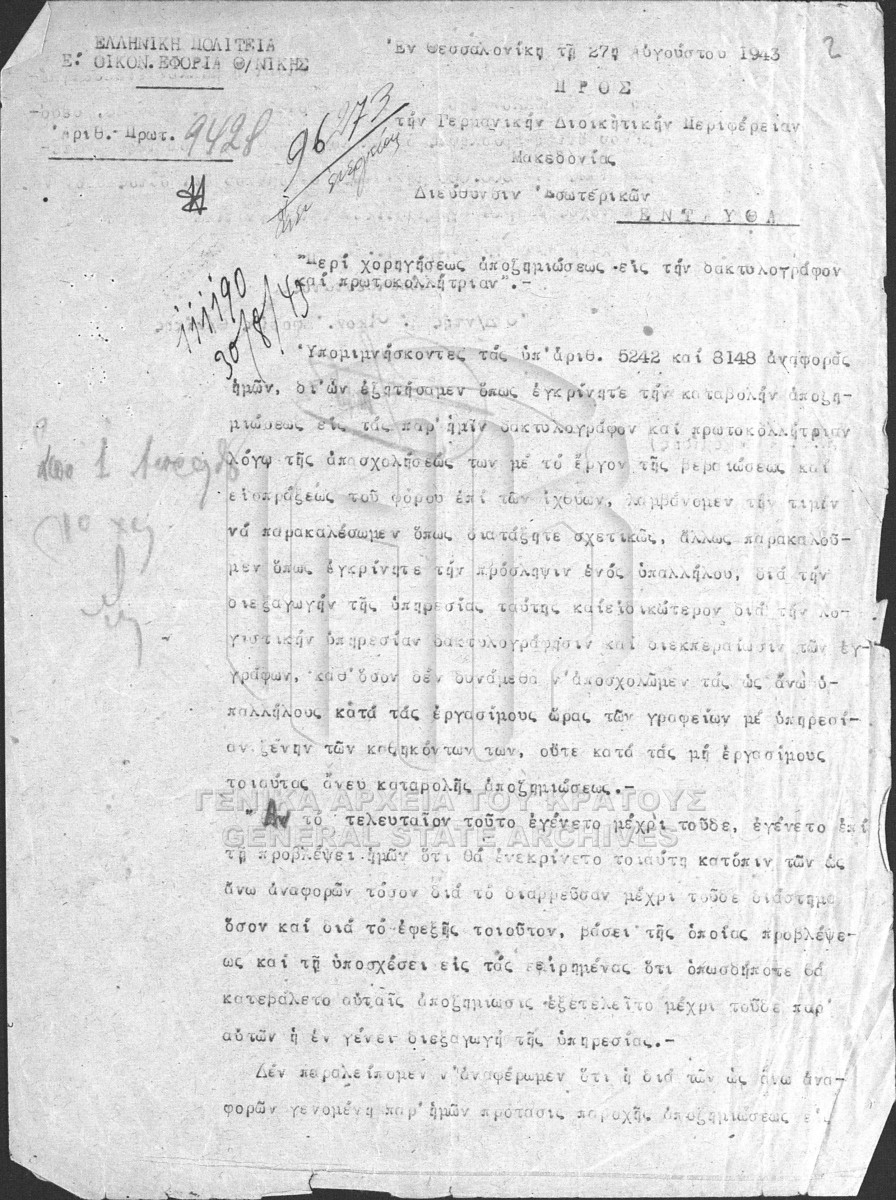 ΕΛΛΗΝΙΚΗ ΠΟΛΙΤΕΙΑ
Ε! ΟΙΚΟΝ.ΕΦΟΡΙΑ Θ/ΝΙΚΗΣ
Ἀριθ.-Πρωτ. 9428
Ἐν Θεσσαλονίκῃ τῇ 27ῃ Αὐγούστου 1943
2
Π Ρ Ο Σ
τήν Γερμανικήν Διοικητικήν Περιφέρειαν
Μακεδονίας
Διεύθυνσιν Ἐσωτερικῶν
Ε Ν Τ Α Υ Θ Α
96273
111190
30/8/43
"Περί χορηγήσεως ἀποζημιώσεως εἰς τήν δακτυλογράφον
καί πρωτοκολλήτριαν".-
Ὑπομιμνήσκοντες τάς ὑπ'ἀριθ. 5242 καί 8148 ἀναφοράς
ἡμῶν, δι'ὧν ἐζητήσαμεν ὅπως ἐγκρίνητε τήν καταβολήν ἀποζη-
μιώσεως εἰς τάς παρ'ἡμῖν δακτυλογράφον καί πρωτοκολλήτριαν
λόγῳ τῆς ἀπασχολήσεώς των μέ τό ἔργον τῆς βεβαιώσεως καί
εἰσπράξεως τοῦ φόρου ἐπί τῶν ἰχθύων, λαμβάνομεν τήν τιμήν
νά παρακαλέσωμεν ὅπως διατάξητε σχετικῶς, ἄλλως παρακαλοῦ-
μεν ὅπως ἐγκρίνητε τήν πρόσληψιν ἑνός ὑπαλλήλου, διά τήν
διεξαγωγήν τῆς ὑπηρεσίας ταύτης καίεἰδικώτερον διά τήν λο-
γιστικήν ὑπηρεσίαν δακτυλογράφησιν καί διεκπεραίωσιν τῶν ἐγ-
γράφων, καθ'ὅσον δέν δυνάμεθα ν'ἀποσχολῶμεν τάς ὡς ἄνω ὑ-
παλλήλους κατά τάς ἐργασίμους ὥρας τῶν γραφείων μέ ὑπηρεσί-
αν ξένην τῶν καθηκόντων των, οὔτε κατά τάς μή ἐργασίμους
τοιαύτας ἄνευ καταβολῆς ἀποζημιώσεως.-
ΓΕΝΙΚΑ ΑΡΧΕΙΑ ΤΟΥ ΚΡΑΤΟΥΣ
GENERAL STATE ARCHIVES
"Αν τό τελευταῖον τοῦτο ἐγένετο μέχρι τοῦδε, ἐγένετο ἐπί
τῇ προβλέψει ἡμῶν ὅτι θά ἐνεκρίνετο τοιαύτη κατόπιν τῶν ὡς
ἄνω ἀναφορῶν τόσον διά τό διαρρεῦσαν μέχρι τοῦδε διάστημα
ὅσον καί διά τό ἐφεξῆς τοιοῦτον, βάσει τῆς ὁποίας προβλέψε-
ως καί τῇ ὑποσχέσει εἰς τάς εἰρημένας ὅτι ὁπωσδήποτε θά
κατεβάλετο αὐταῖς ἀποζημίωσις ἐξετελεῖτο μέχρι τοῦδε παρ'
αὐτῶν ἡ ἐν γένει διεξαγωγή τῆς ὑπηρεσίας.-
Δέν παραλείπομεν ν'ἀναφέρωμεν ὅτι ἡ διά τῶν ὡς ἄνω ἀνα-
φορῶν γενομένη παρ'ἡμῶν πρότασις παροχῆς ἀποζημιώσεως εἰς